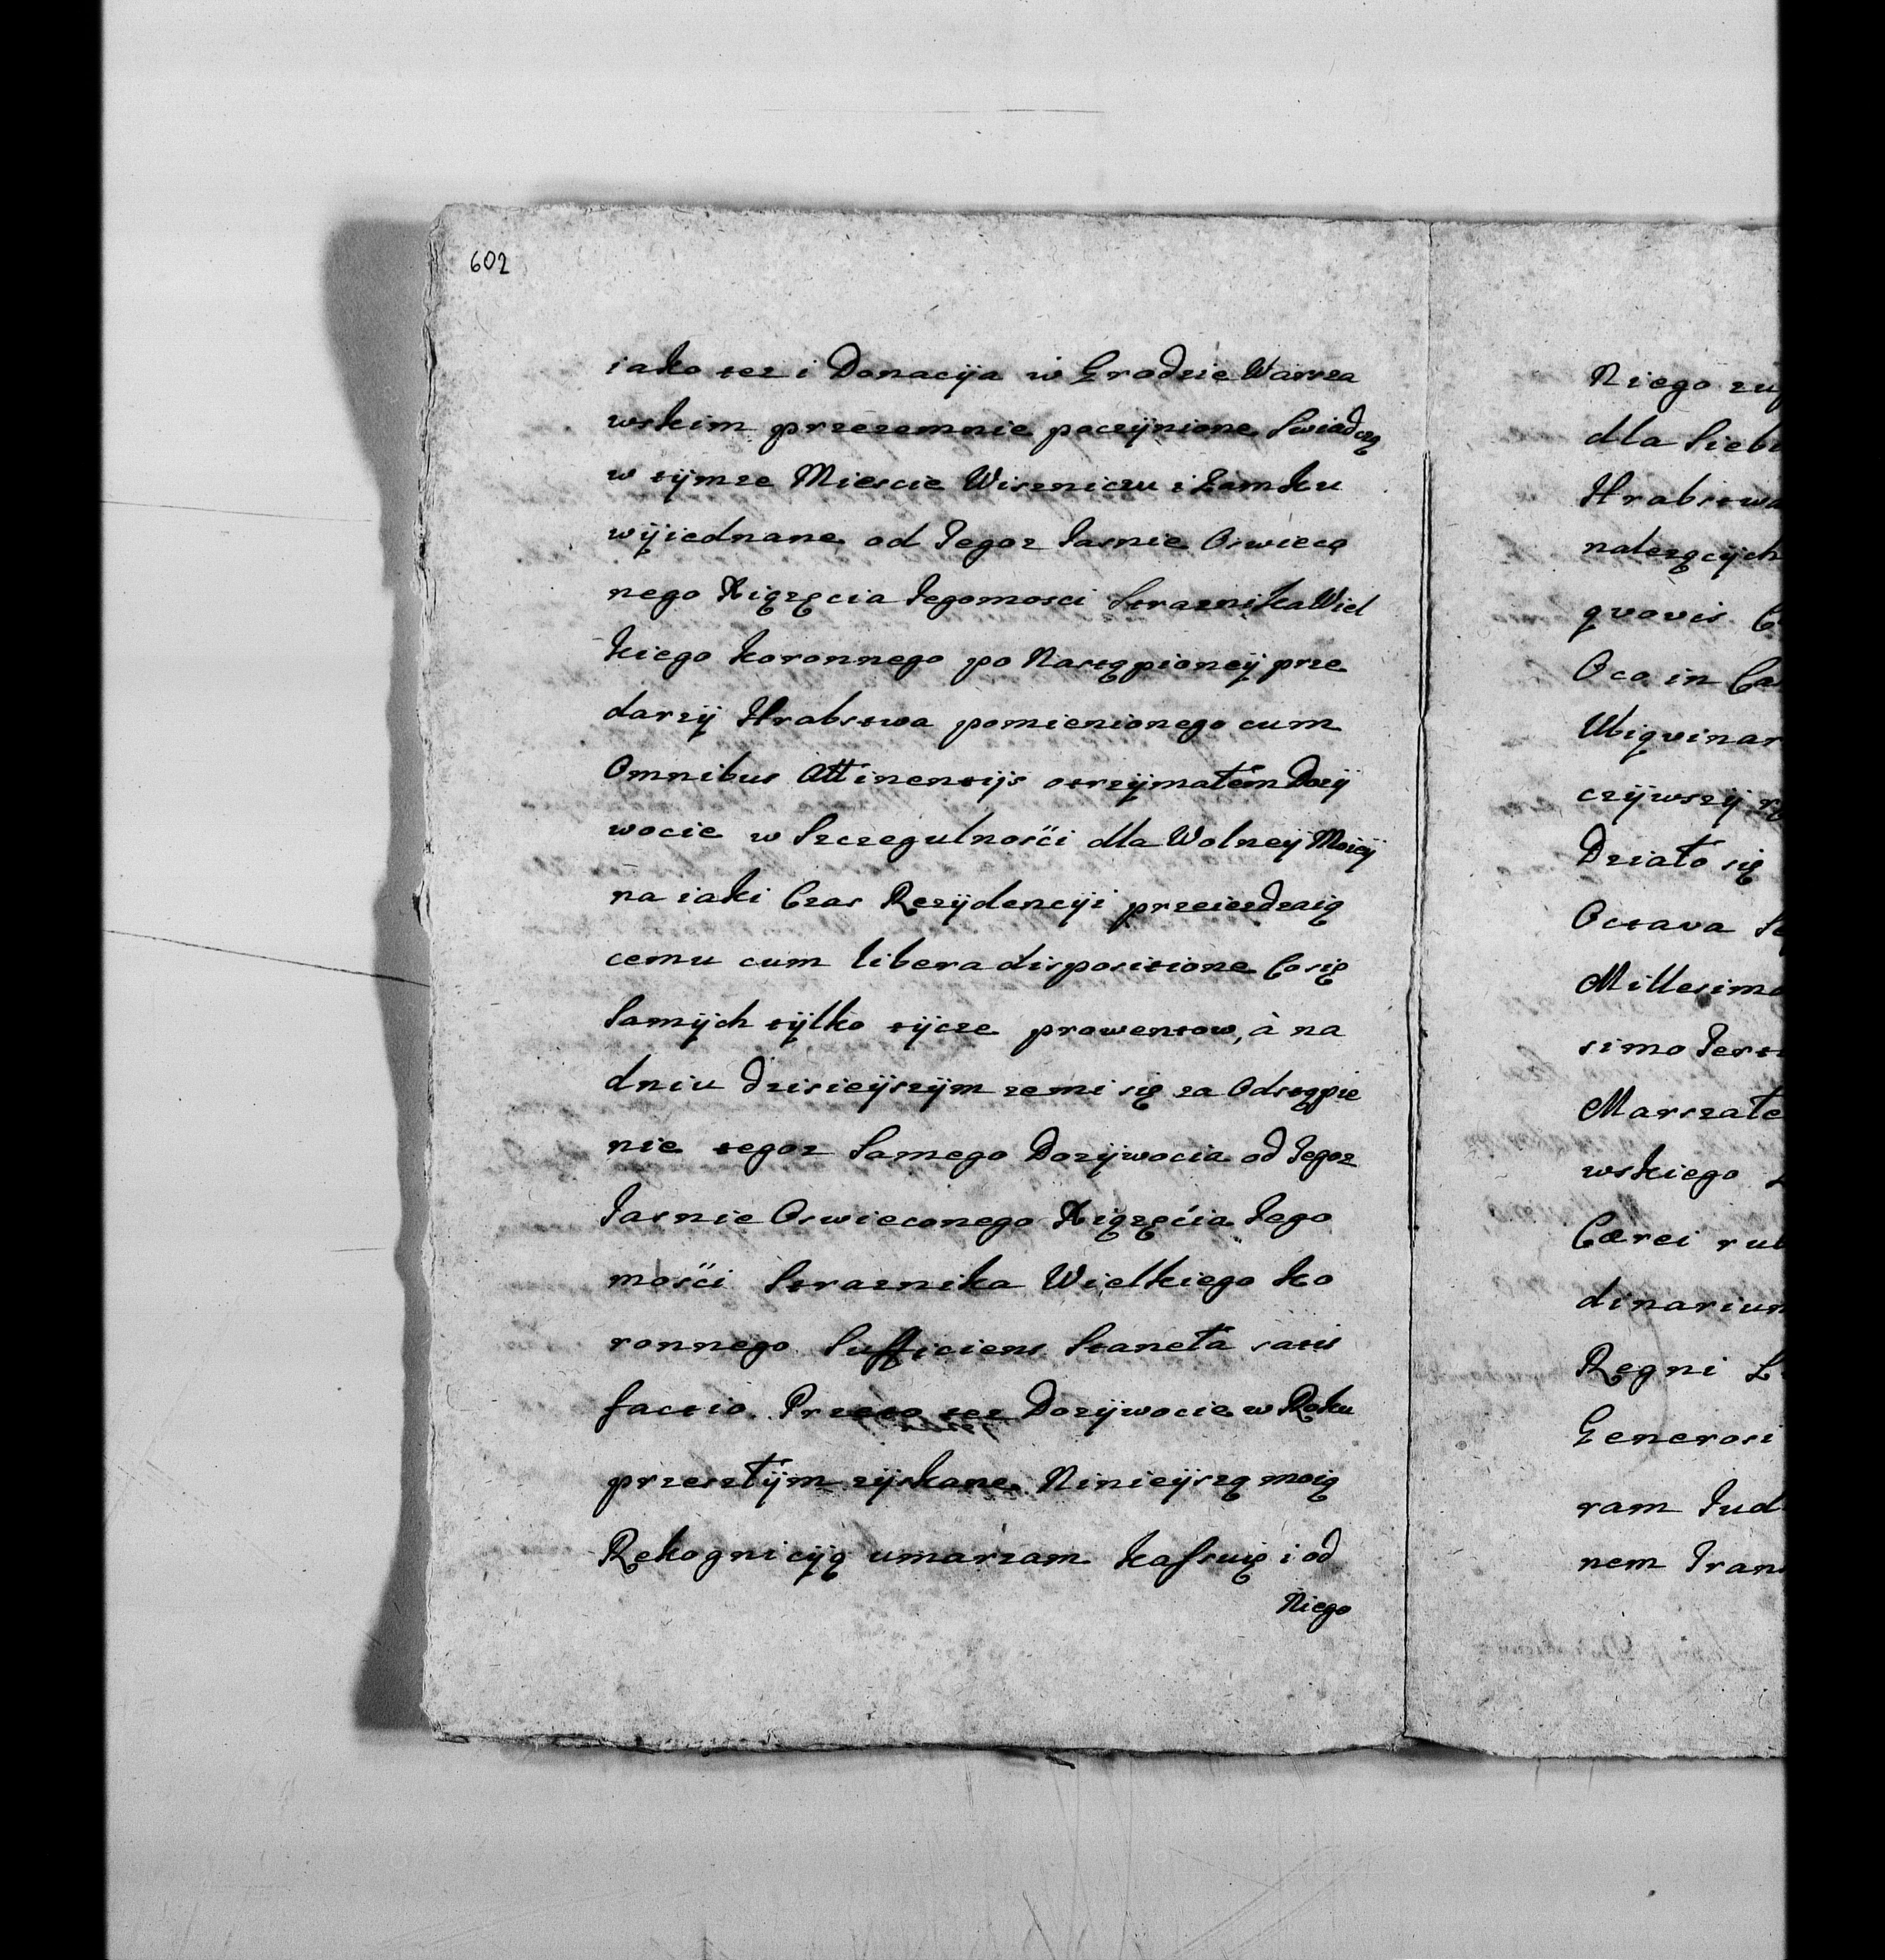 602
iako tez i Donacija w Grodzie Warsza
wskim przezemnie poczÿnione Swiadczą
w tÿmze Miescie Wiszniczu i Zamku
wÿiednane od Tegoz Jasnie Oswieco
nego Xiązęcia Jegomosci Straznika Wiel
kiego koronnego po Nastąpioneÿ prze
darzÿ Hrabstwa pomienionego cum
Omnibus Attinentijs otrzÿmałem Dozÿ
wocie w Szczegulnosći dla Wolneÿ Moieÿ
na iaki Czas Rezÿdencÿi przeiezdzaią
cemu cum libera dispositione Co się
Samÿch tÿlko tÿcze prowentow, à na
dniu dzisieÿszÿm ze mi się za Odstąpie
nie tegoz Samego Dozÿwocia od Tegoz
Jasnie Oswieconego Xiązęćia Jego
mośći Straznika Wielkiego ko
ronnego Sufficiens Staneła satis
factio. Przeto tez Dozÿwocie w Roku
przeszłÿm zÿskane. Ninieÿszą moią
Rekognicÿą umarzam kassuię i od
Niego
Niego
dla Siebi
Hrabstwa
nalezących
quovis
Oco in
Ubiqvinar
czÿwszÿ
Działo się
Octava
Millesimo
simo
Marszałe
wskiego
Cærei
dinarium
Regni
Generosi
ram Jud
nem Trans